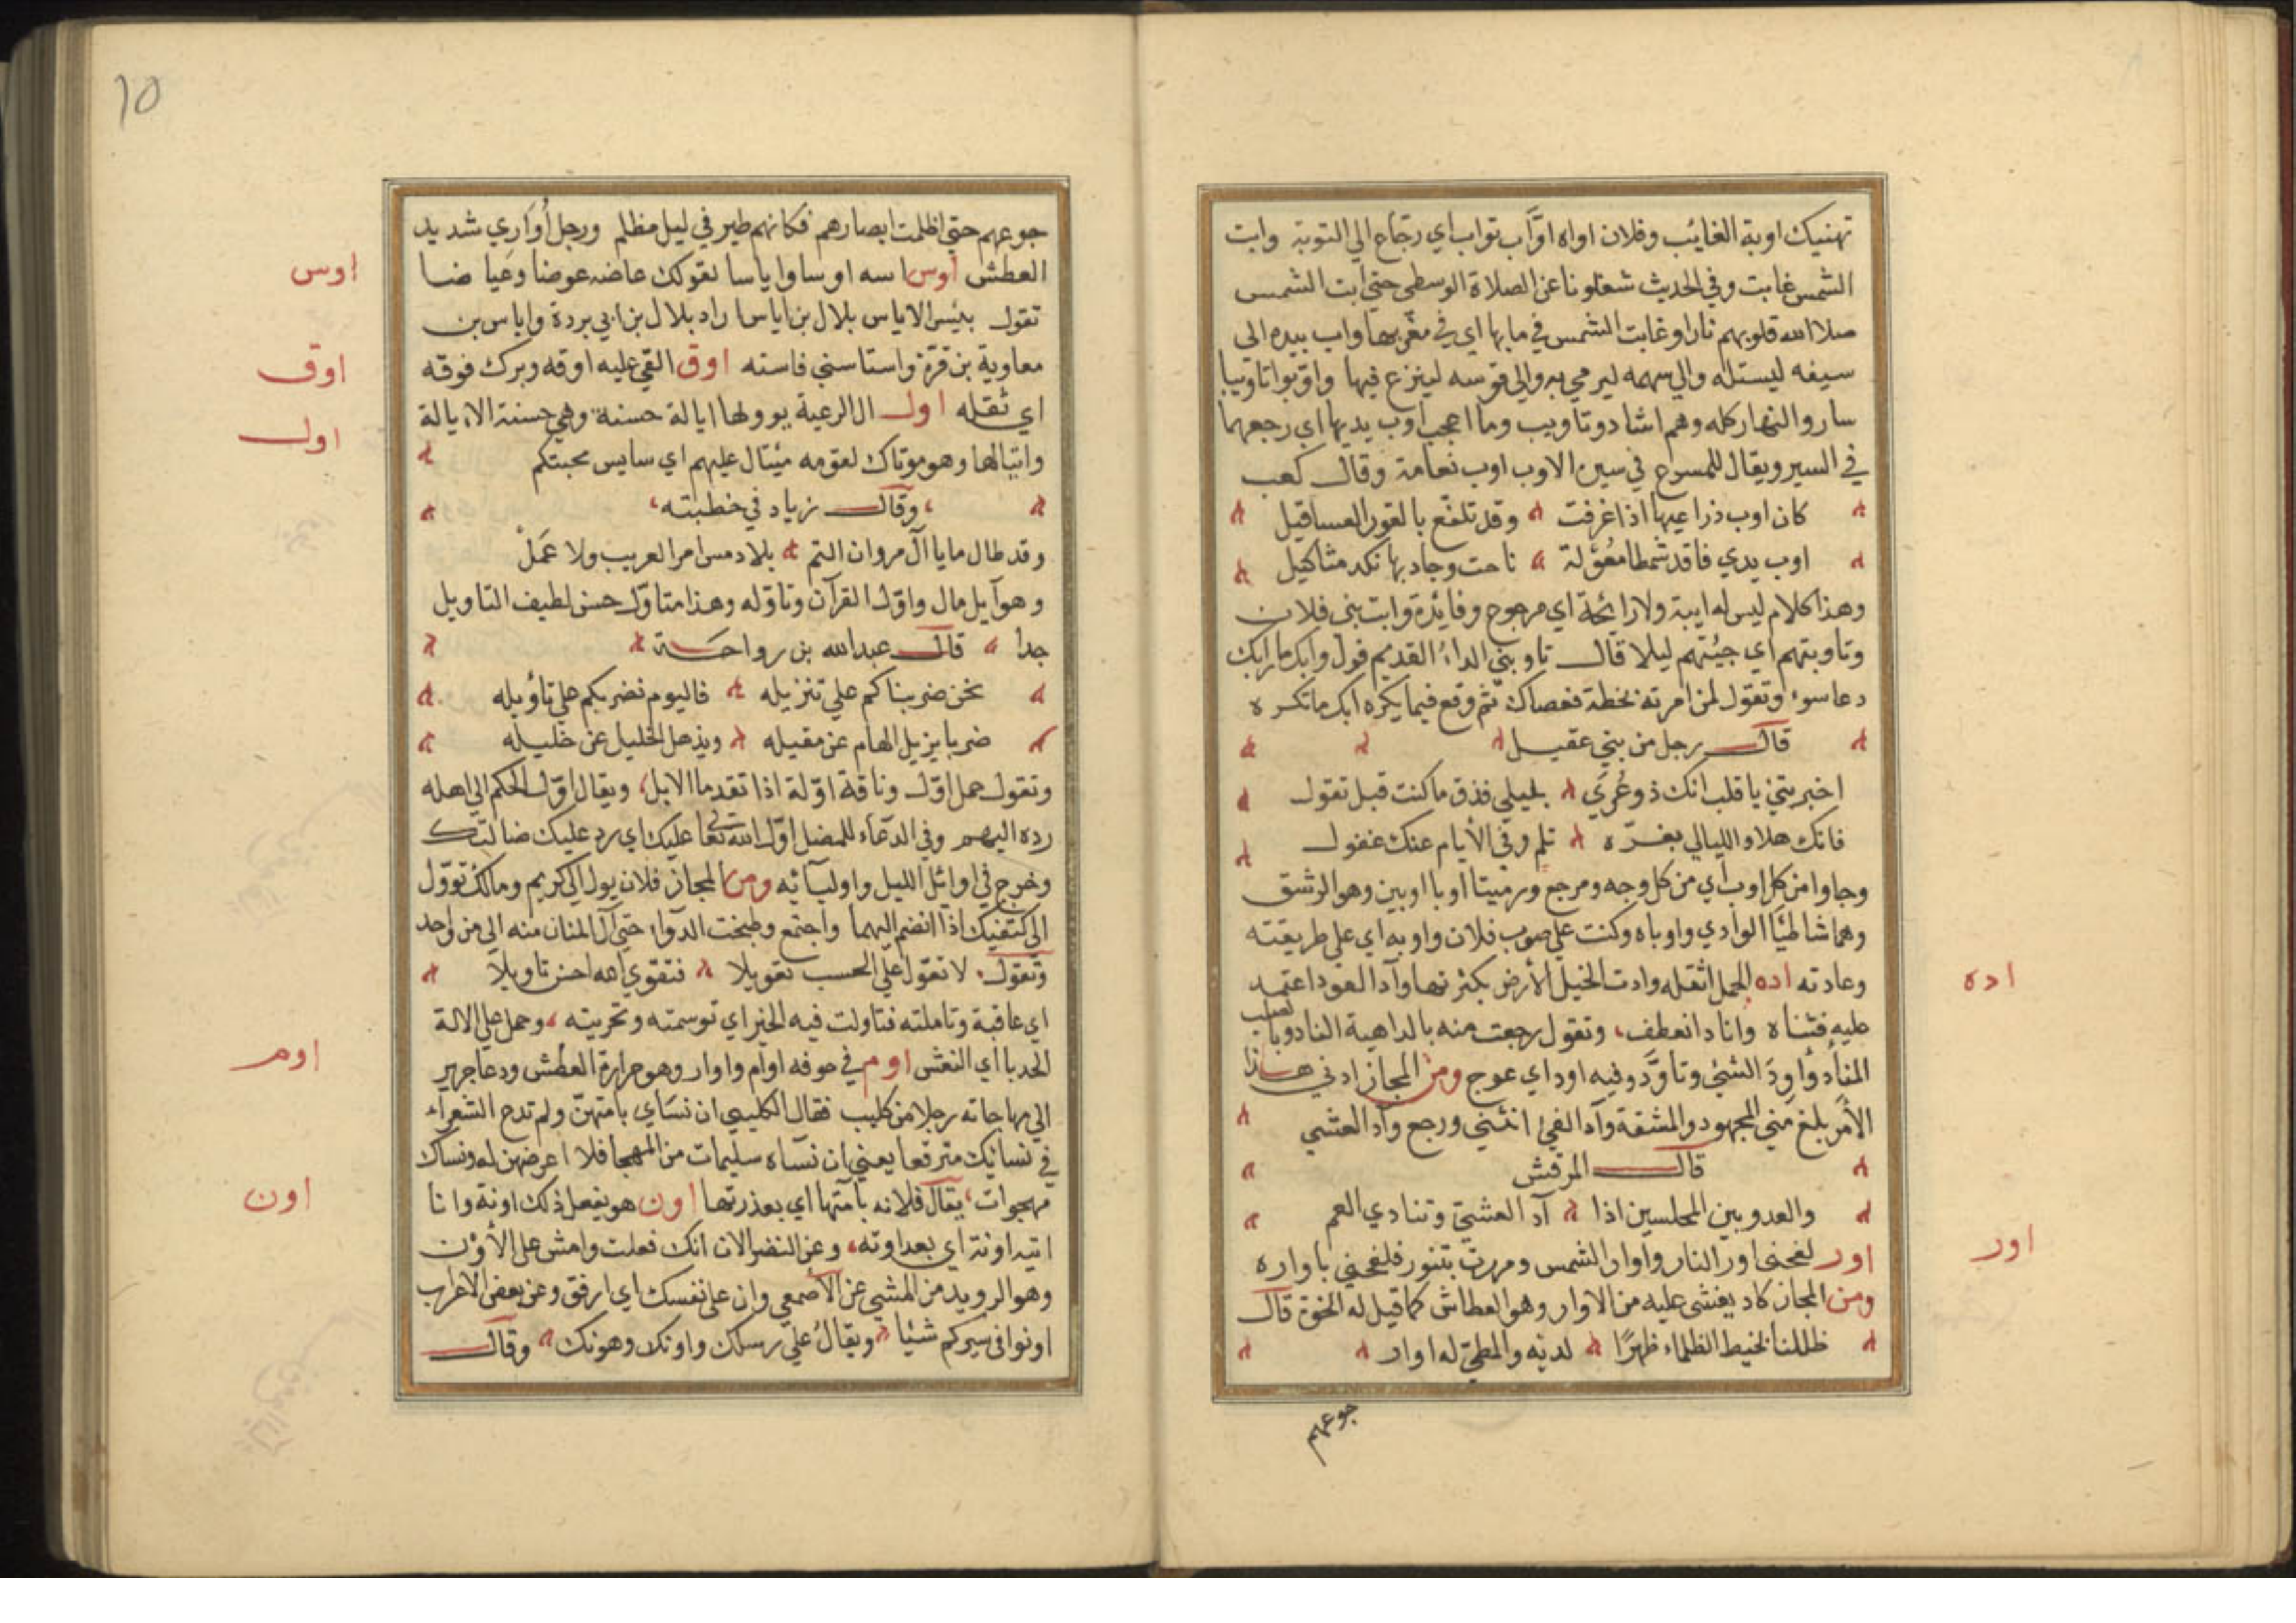 تهنيك اوبة الغايب وفلان اواه اوّاب تواب اي رجّاع الي التوبة وابت
الشمس غابت وفي الحديث شغلونا عن الصلاة الوسطي حتي ابت الشمس
ملا الله قلوبهم نارا وغابت الشمس في مابها اي في مغربها واب بيده الي
سيفه ليستله والي سهمه ليرمي به والي قوسه لينزع فيها واوّبوا تاويبا
ساروا النهار كله وهم اشاد وتاويب وما اعجب اوب يديها اي رجعهما
في السير ويقال للمسرع في سيره الاوب اوب نعامة وقال كعب
كان اوب ذراعيها اذا غرفت وقد تلفّع بالقور العساقيل
اوب يدي فاقد شمطا معولة ناحت وجاد بها نكد مثاكيل
وهذا كلام ليس له ايبة ولا رايحة اي مرجوع وفايدة وابت بني فلان
وتاوبتهم اي جيتهم ليلا قال تاوبني الداء القديم فول وابك ما رابك
دعا سوء وتقول لمن امرته بخطة فعصاك ثم وقع فيما يكره ابك ما تكره
قال رجل من بني عقيل
اخبرتني يا قلب انك ذو عُرَي بليلي فذق ما كنت قبل تقول
فانك هلا والليالي بغرّه تلم وفي الأيام عنك غفول
وجاوا من كل اوب اي من كل وجه ومرجع ورمينا اوبا اوبين وهو الرشق
وهما شاطئا الوادي واوباه وكنت علي صوب فلان واوبه اي علي طريقته
اده
وعادته اده الحمل اثقله وادت الخيل الأرض بكثرتها وآد العود اعتمد
عليه فثناه واناد انعطف، وتقول رجعت منه بالداهية الناد وبا لصلب
المناد واودَ الشئ وتاوّد وفيه اود اي عوج ومن المجاز ادني هذا
الأمر بلغ مني المجهود والمشقة وآد الفئ انثني ورجع وآد العشي
قال المرقش
والعدو بين المجلسين اذا آد العشيّ وتنادي العم
اور
اور لفحني اور النار واوار الشمس ومررت بتنور فلفحني باواره
ومن المجاز كاد يغشي عليه من الاوار وهو العطاش كما قيل له الخوة قال
ظللنا نخيط الظلماء ظهرًا لديه والمطيّ له اوار
جوعهم
10
جوعهم حتي اظلمت ابصارهم فكانهم طير في ليل مظلم ورجل أُواري شديد
اوس
العطش اوس اسه اوسا واياسا لقولك عاضه عوضا وعياضا
تقول بئيس الاياس بلال بن اياس اراد بلال بن ابي بردة واياس بن
اوق
معاوية بن قرّة واستاسني فاسته اوق القي عليه اوقه وبرك فوقه
اول
اي ثقله اول ال الرعية يوولها ايالة حسنة وهي حسنة الايالة
وايتالها وهو موتاك لقومه ميتال عليهم اي سايس محبتكم
وقال زياد في خطبته
وقد طال ما يا آل مروان التم بلا دمس امر العريب ولا عَمَلْ
وهو آيل مال واوّل القرآن وتاوّله وهذا متاوّل حسن لطيف التاويل
جدا قال عبد الله بن رواحة
نحن ضربناكم علي تنزيله فاليوم نضربكم علي تأويله
ضربا يزيل الهام عن مقيله ويذهل الخليل عن خليله
وتقول جمل اوّل وناقة اوّلة اذا تقدما الابل، ويقال اوّل الحكم الي اهله
رده اليهم وفي الدعاء للمضل اوّل الله تعالي عليك اي رد عليك ضالتك
وخرج في اوائل الليل واولياته ومن المجاز فلان يول الي كريم ومالك توّول
الي كتفيك اذا انضم اليهما واجتمع وطبخت الدوا حتي آل المنان منه الي من واحد
وتقول لا تعوّل علي الحسب تعويلا فتقوي الله احسن تاويلا
اي عاقبة وتاملته فتاولت فيه الخير اي توسمته وتحريته، وحمل علي الالة
اوم
الحدبا اي النعش اوم في جوفه اوام واوار وهو حرارة العطش ودعا جرير
الي مهاجاته رجلا من كليب فقال الكليبي ان نسَاي بامتهنّ ولم تدع الشعرآء
في نسايك مترقعا يعني ان نسآه سليمات من الهجا فلا اعرضهن له ونساك
اون
مهجوات، يقال فلانه بامتها اي بعذرتها اون هو يفعل ذلك اونة وانا
اتيه اونة اي بعد اونه، وعن النضر الان انك فعلت وامش علي الأون
وهو الرويد من المشي عن الأصمعي وان علي نفسك اي ارفق وعن بعض الاعراب
اونوا في سيركم شئيا ويقالُ علي رسلك واونك وهونك وقال